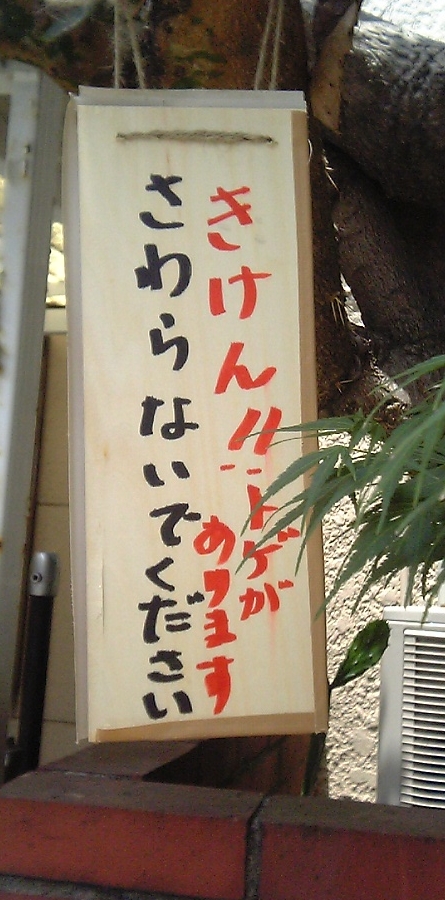 きけん!!トゲが
あります
さわらないでください